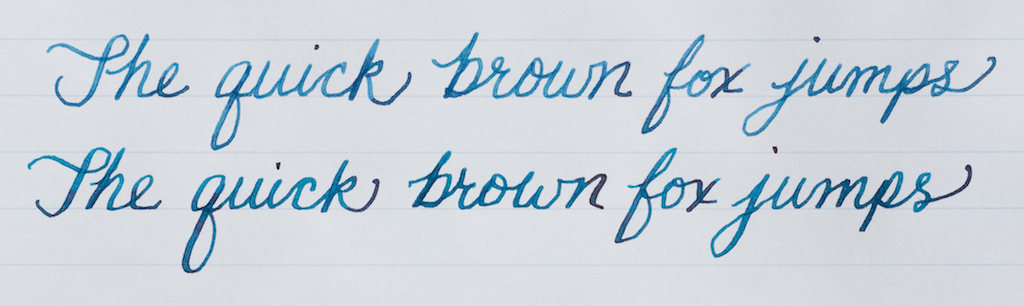 The quick brown fox jumps
The quick brown fox jumps